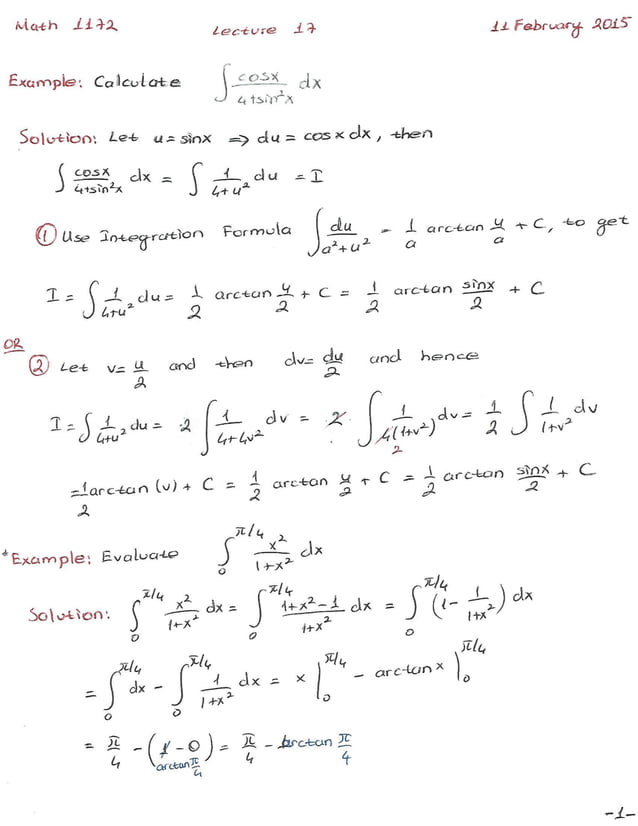 Math 1172 Lecture 17 11 February 2015
Example: Calculate ∫ cosx/(4+sin²x) dx
Solution: Let u=sinx ⇒ du = cosx dx, then
∫ cosx/(4+sin²x) dx = ∫ 1/(4+u²) du = I
① Use Integration Formula ∫ du/(a²+u²) = 1/a arctan u/a + C, to get
I = ∫ 1/(4+u²) du = 1/2 arctan u/2 + C = 1/2 arctan sinx/2 + C
OR
② Let v= u/2 and then dv= du/2 and hence
I = ∫ 1/(4+u²) du = 2 ∫ 1/(4+4v²) dv = 2 ∫ 1/(4(1+v²)) dv = 1/2 ∫ 1/(1+v²) dv
2
= 1/2 arctan (v) + C = 1/2 arctan u/2 + C = 1/2 arctan sinx/2 + C
*Example: Evaluate ∫₀^(π/4) x²/(1+x²) dx
Solution: ∫₀^(π/4) x²/(1+x²) dx = ∫₀^(π/4) (1+x²-1)/(1+x²) dx = ∫₀^(π/4) (1 - 1/(1+x²)) dx
= ∫₀^(π/4) dx - ∫₀^(π/4) 1/(1+x²) dx = x |₀^(π/4) - arctan x |₀^(π/4)
= π/4 - (1 - 0) = π/4 - arctan π/4
arctan π/4
-1-